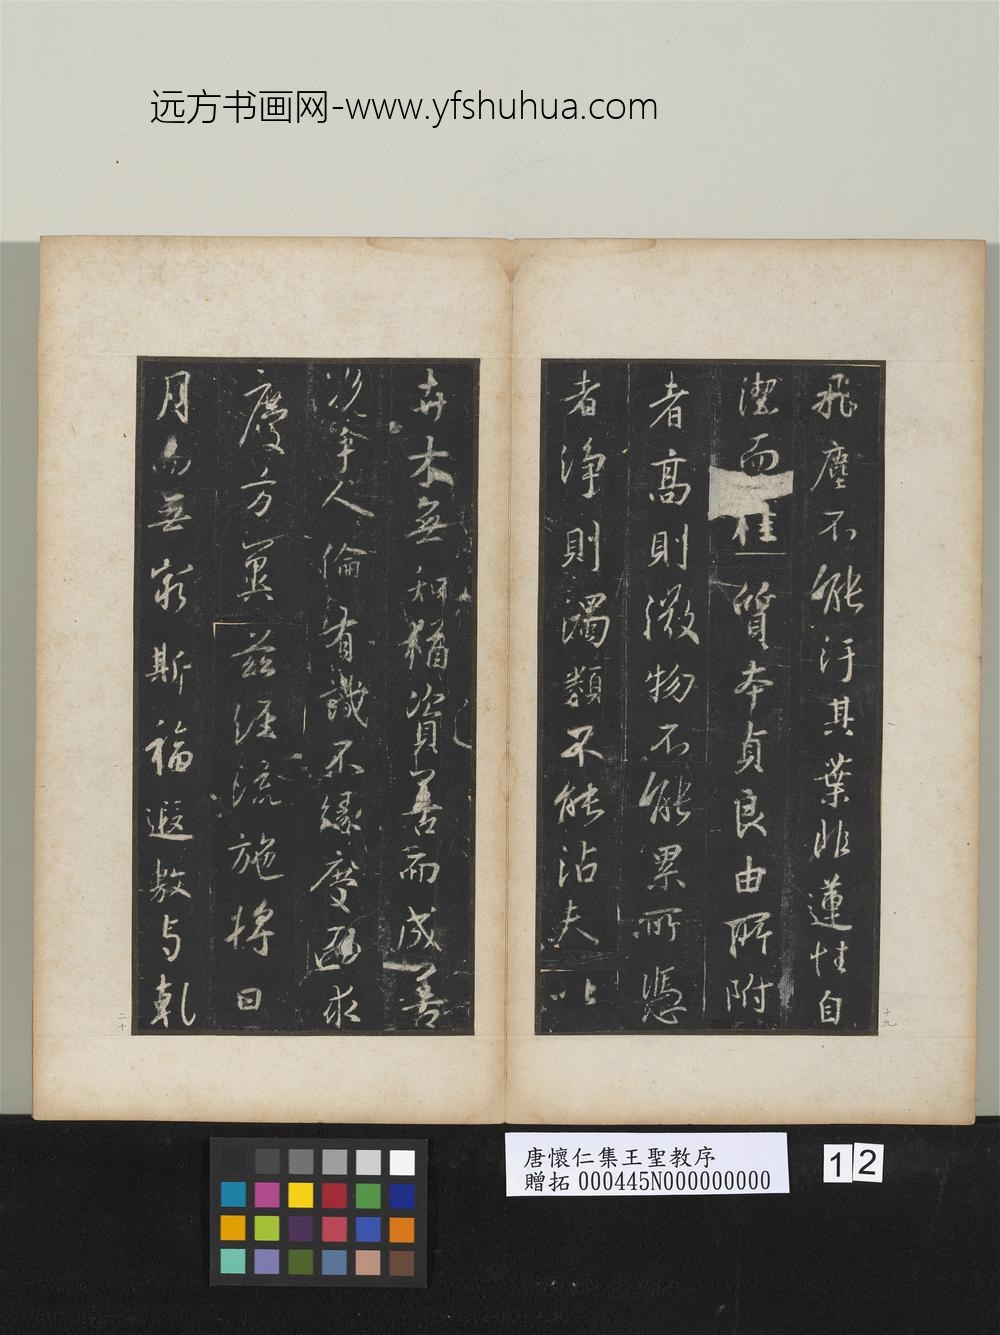 远方书画网-www.yfshuhua.com
飛塵不能汙其葉非蓮性自
潔而桂質本貞良由所附
者高則微物不能累所憑
者淨則濁類不能沾夫以
卉木無知猶資善而成善
況乎人倫有識不緣慶而求
慶方冀茲經流施將日
月而無窮斯福遐敷與乾
十九
二十
唐懷仁集王聖教序
贈拓 000445N000000000
12